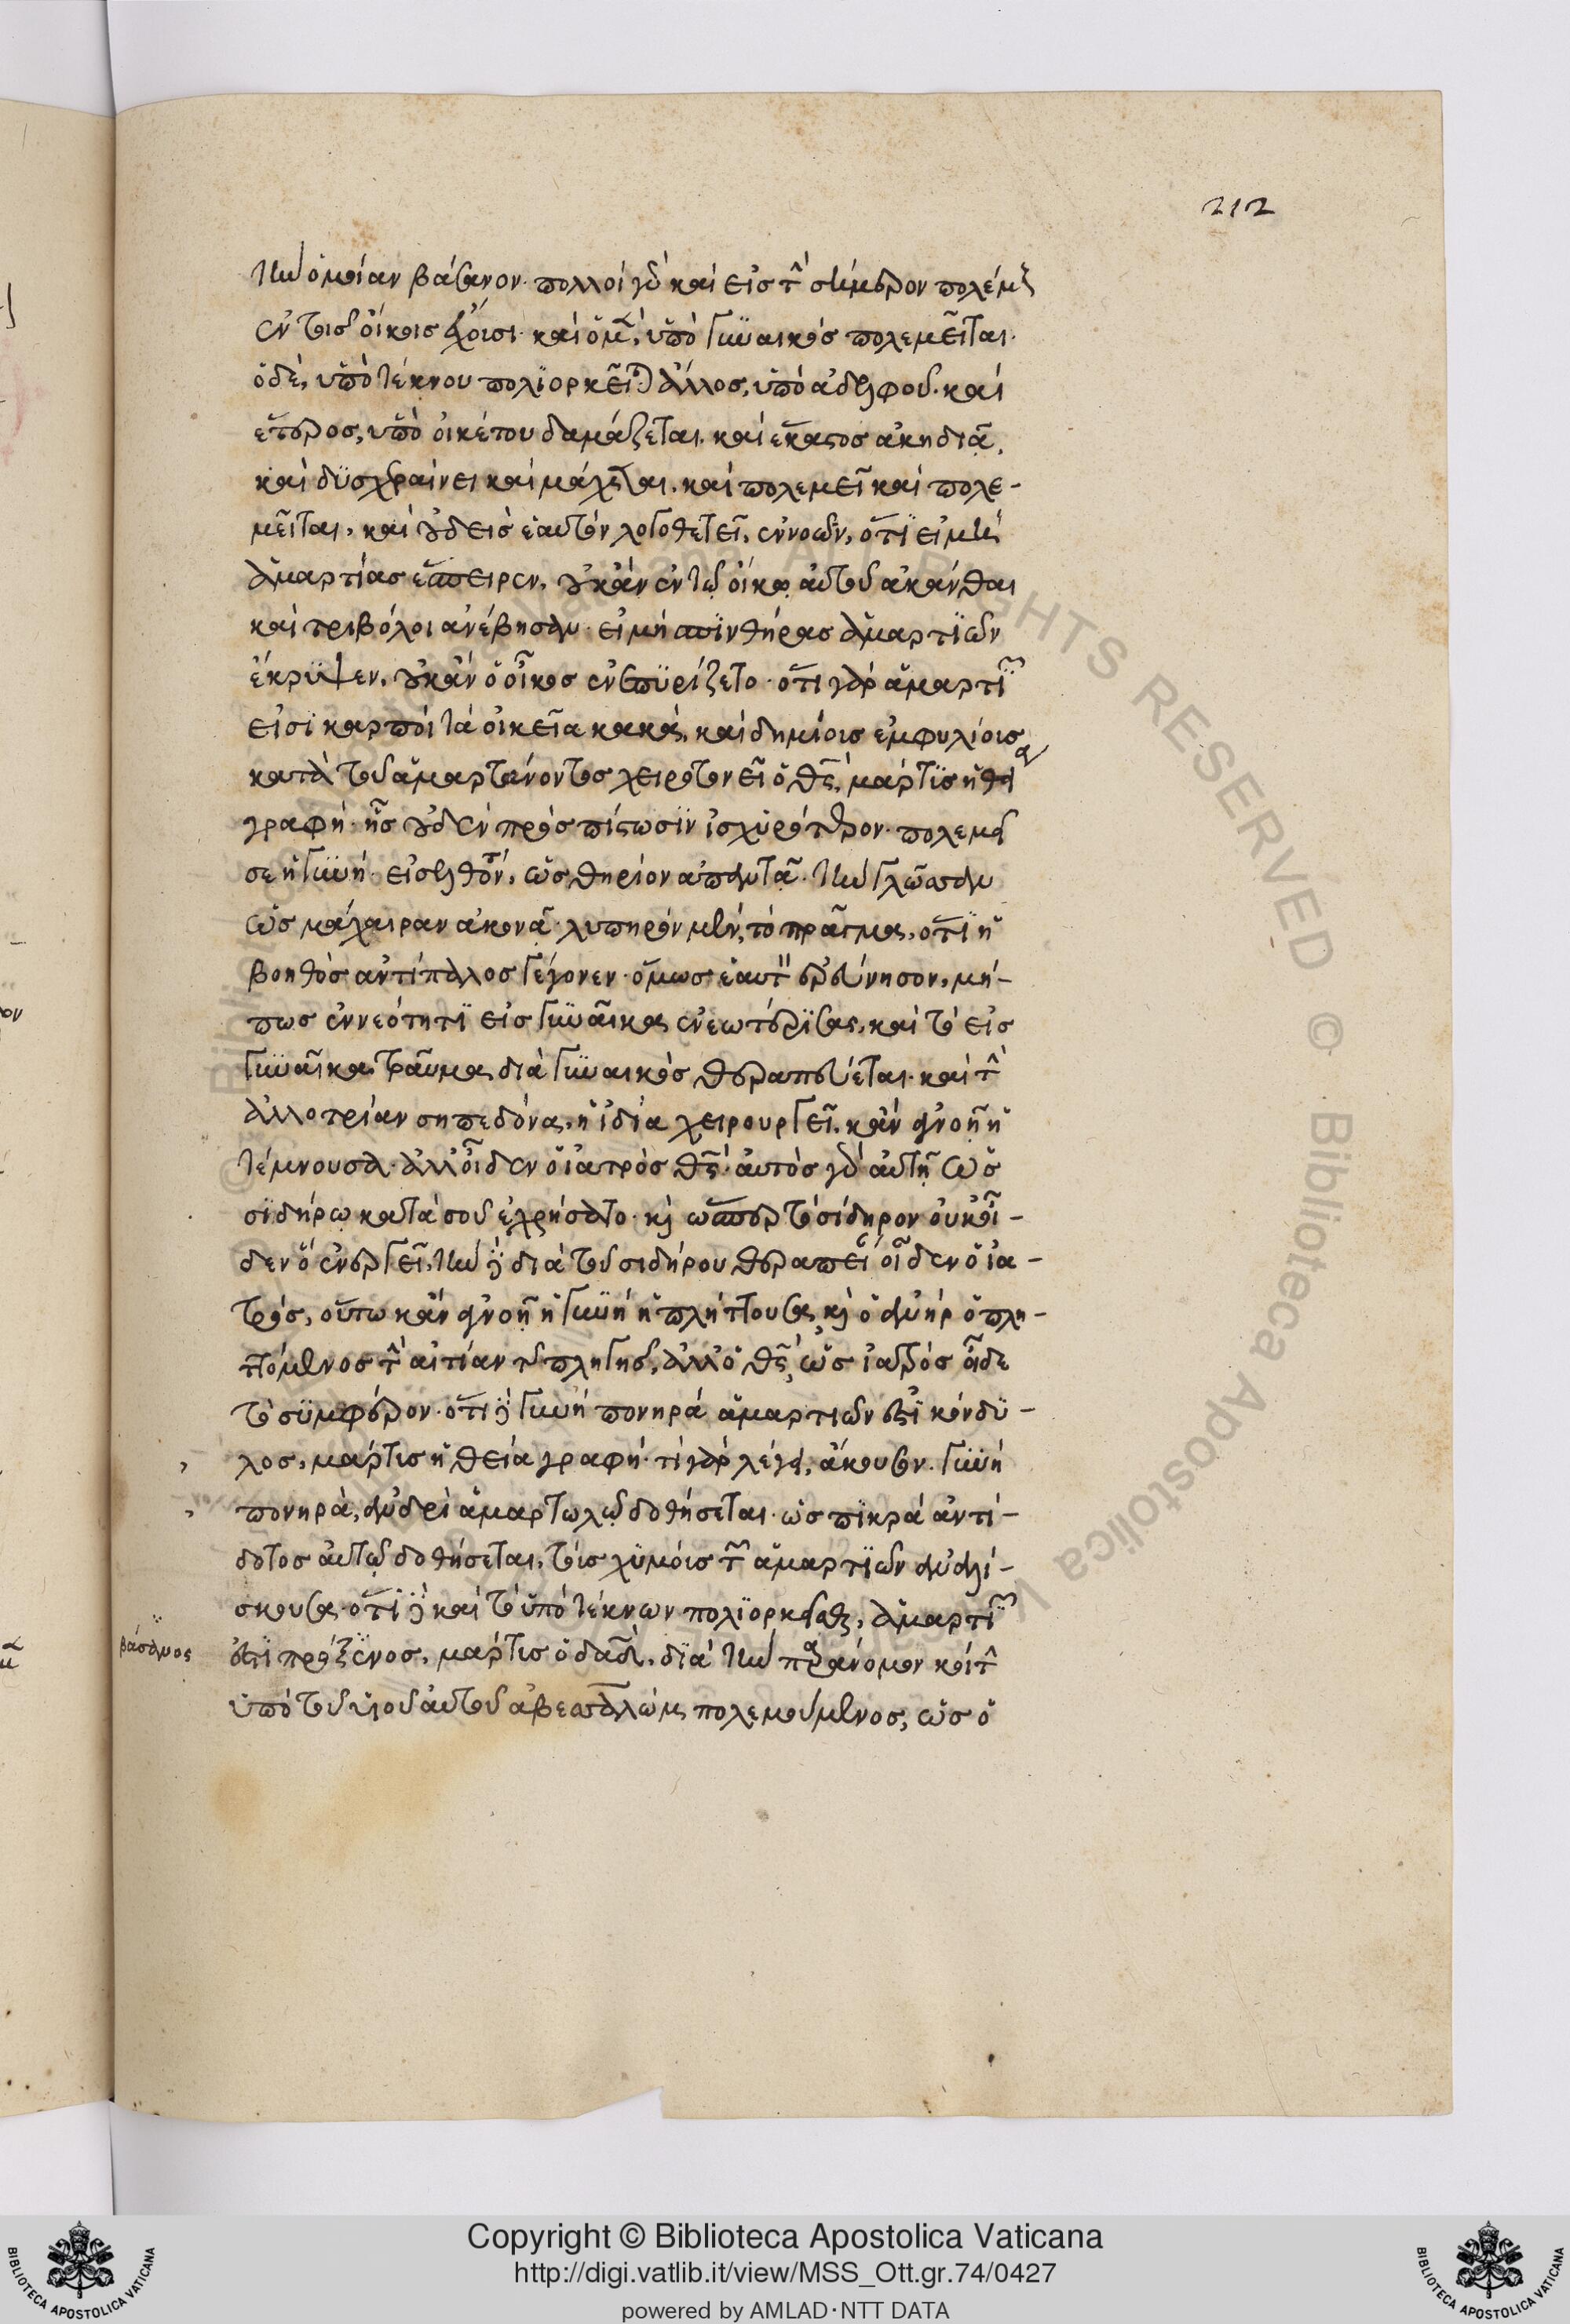 212
τὴν ὁμοίαν βάσανον. πολλοὶ γὰρ καὶ εἰς τὴν σήμερον πολέμους
ἐν τοῖς οἴκοις ἔχουσι. καὶ ὁ μὲν, ὑπὸ γυναικὸς πολεμεῖται.
ὁ δὲ, ὑπὸ τέκνου πολιορκεῖται. ἄλλος, ὑπὸ ἀδελφοῦ. καὶ
ἕτερος, ὑπὸ οἰκέτου δαμάζεται. καὶ ἕκαστος ἀκηδιᾷ,
καὶ δυσχεραίνει καὶ μάχεται. καὶ πολεμεῖ καὶ πολε-
μεῖται, καὶ οὐδεὶς ἑαυτὸν λογοθετεῖ, ἐννοῶν, ὅτι εἰ μὴ
ἁμαρτίας ἔσπειρεν, οὐκ ἂν ἐν τῷ οἴκῳ αὐτοῦ ἄκανθαι
καὶ τριβόλοι ἀνέβησαν. εἰ μὴ σπινθῆρας ἁμαρτιῶν
ἔκρυψεν, οὐκ ἂν ὁ οἶκος ἐνεπυρίζετο. ὅτι γὰρ ἁμαρτιῶν
εἰσὶ καρποὶ τὰ οἰκεῖα κακὰ, καὶ δημίοις ἐμφυλίοις
κατὰ τοῦ ἁμαρτάνοντος χειροτονεῖ ὁ θς, μάρτις ἡ θεία
γραφή. ἧς οὐδὲν πρὸς πίστωσιν ἰσχυρότερον. πολεμεῖ
σε ἡ γυνή. εἰσελθόντα, ὡς θηρίον ἀπαντᾷ. τὴν γλῶσσαν
ὡς μάχαιραν ἀκονᾷ. λυπηρὸν μὲν, τὸ πρᾶγμα, ὅτι ἡ
βοηθὸς ἀντίπαλος γέγονεν. ὅμως ἑαυτὸν ἐρεύνησον, μή-
πως ἐν νεότητι εἰς γυναῖκα ἐνεωτέρισας, καὶ τὸ εἰς
γυναῖκα τραῦμα διὰ γυναικὸς θεραπεύεται. καὶ τὴν
ἀλλοτρίαν σηπεδόνα, ἡ ἰδία χειρουργεῖ. κἂν ἀγνοῇ ἡ
τέμνουσα. ἀλλ' οἶδεν ὁ ἰατρὸς θς. αὐτὸς γὰρ αὐτῇ ὡς
σιδήρω κατὰ σοῦ ἐχρήσατο. καὶ ὥσπερ τὸ σίδηρον οὐκ οἶ-
δεν ὃ ἐνεργεῖ, τὴν δὲ διὰ τοῦ σιδήρου θεραπείαν οἶδεν ὁ ἰα-
τρὸς, οὕτω κἂν ἀγνοῇ ἡ γυνὴ ἡ πλήττουσα καὶ ὁ ἀνὴρ ὁ πλη-
ττόμενος τὴν αἰτίαν τῆς πληγῆς, ἀλλ' ὁ θς, ὡς ἰατρὸς οἶδε
τὸ συμφέρον. ὅτι δὲ γυνὴ πονηρὰ ἁμαρτιῶν ἐστὶ κόνδυ-
λος, μάρτις ἡ θεία γραφή. τί γὰρ λέγει, ἄκουσον. γυνὴ
πονηρὰ, ἀνδρὶ ἁμαρτωλῷ δοθήσεται. ὡς πικρὰ ἀντί-
δοτος αὐτῷ δοθήσεται, τοῖς χυμοῖς τῶν ἁμαρτιῶν ἀναλί-
σκουσα. ὅτι δὲ καὶ τὸ ὑπὸ τέκνων πολιορκεῖσθαι, ἁμαρτιῶν
βάσανος
ἐστὶ πρόξενος, μάρτις ὁ δαδ, διὰ τὴν παράνομον κοίτην
ὑπὸ τοῦ υἱοῦ αὐτοῦ ἀβεσσαλὼμ πολεμούμενος, ὡς ὁ
Copyright © Biblioteca Apostolica Vaticana
http://digi.vatlib.it/view/MSS_Ott.gr.74/0427
powered by AMLAD·NTT DATA